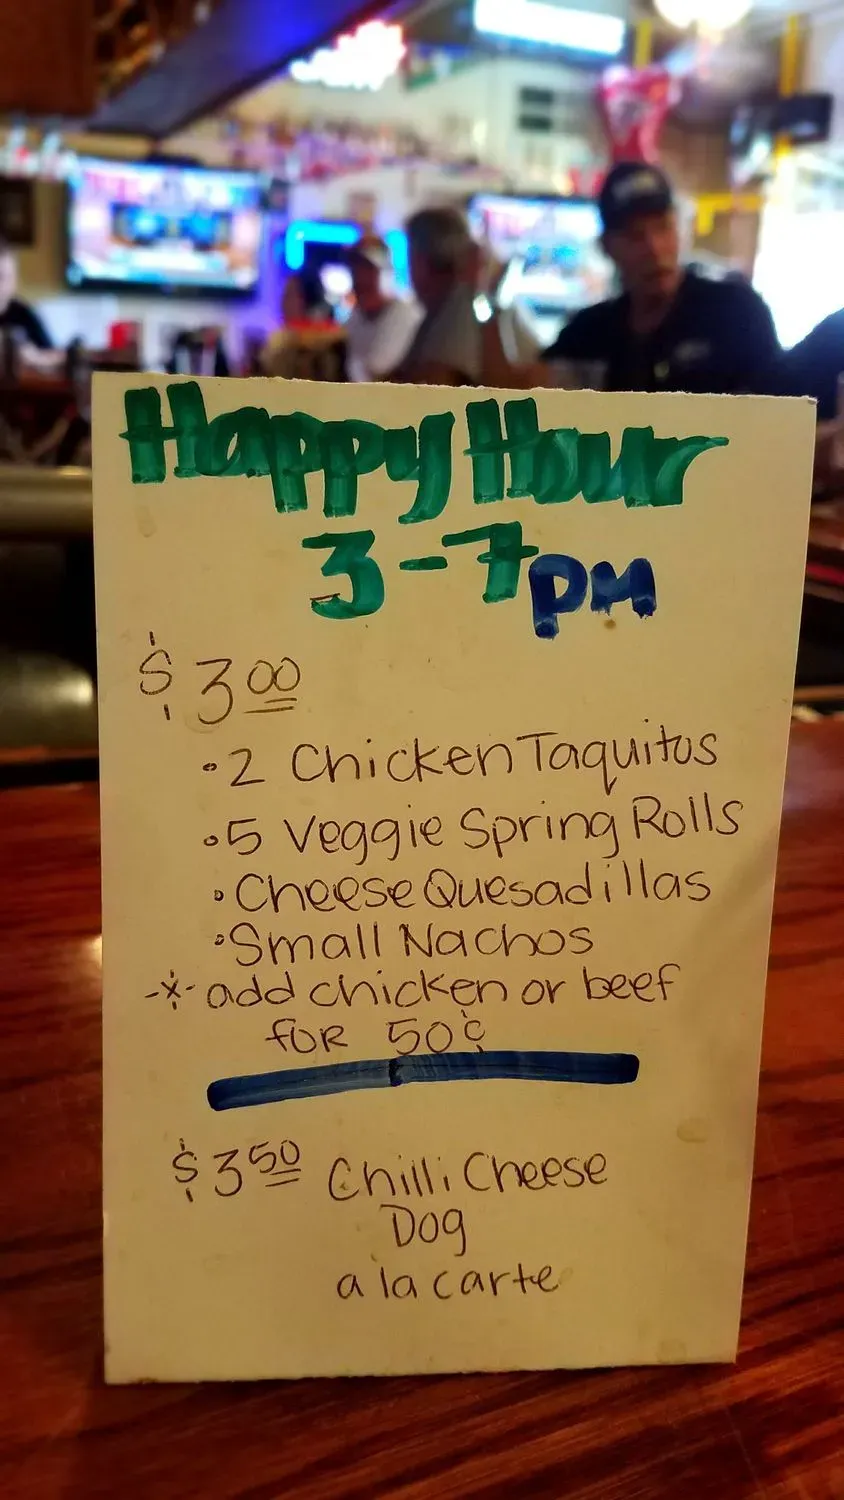 Happy Hour
3-7pm
$3.00
• 2 Chicken Taquitos
• 5 Veggie Spring Rolls
• Cheese Quesadillas
• Small Nachos
-*- add chicken or beef
for 50¢
$3.50 Chilli Cheese
Dog
a la carte